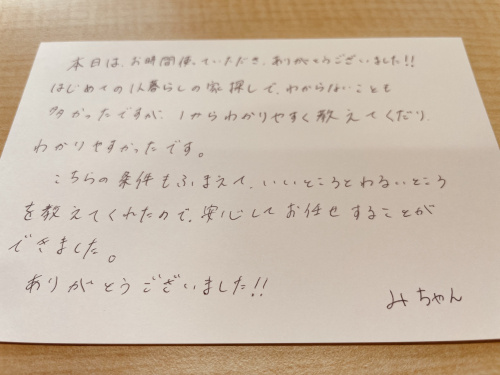 本日は、お時間使っていただき、ありがとうございました!!
はじめての1人暮らしの家探しで、わからないことも
多かったですが、1からわかりやすく教えてくだり
わかりやすかったです。
こちらの条件もふまえて、いいところとわるいところ
を教えてくれたので、安心してお任せすることが
できました。
ありがとうございました!!
みちゃん